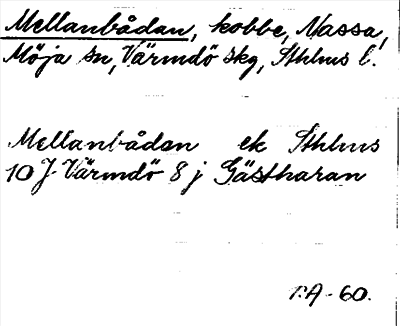 Mellanbådan, kobbe, Nassa,
Möja sn, Värmdö skg, Sthlms l.
Mellanbådan ek Sthlms
10 J Värmdö 8 j Gästharan
A-60.